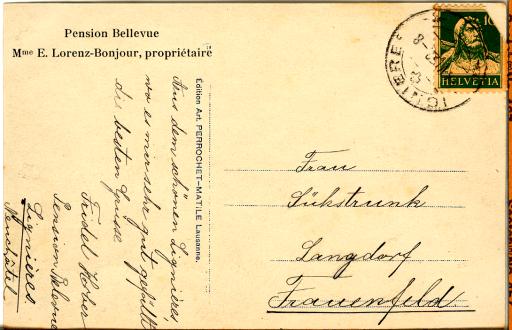 Pension Bellevue
Mme E. Lorenz-Bonjour, propriétaire
Aus dem schönen Lignières,
wo es mir sehr gut gefällt
die besten Grüsse
Fridel Huber
Pension Belevue
Lignières
Neuchâtel
Édition Art. PERROCHET-MATILE Lausanne.
Frau
Sükstrunk
Langdorf
Frauenfeld
LIGNIERES
10
HELVETIA